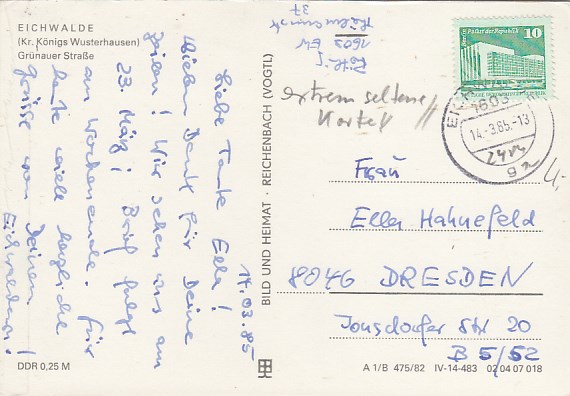 EICHWALDE
(Kr. Königs Wusterhausen)
Grünauer Straße
14.03.85
Liebe Tante Ella!
Vielen Dank für Deine
Zeilen! Wir sehen uns am
23. März! Brief folgt
am Wochenende. Für
heute viele herzliche
Grüße von Deinen
Eichwaldern!
DDR 0,25 M
BILD UND HEIMAT · REICHENBACH (VOGTL)
1603
37
extrem seltene
Karte!!
10
Palast der Republik
1603
14.-3.85.-13
Frau
Ella Hahnefeld
8046 DRESDEN
Jonsdorfer Str 20
B 5/52
A 1/B 475/82 IV-14-483 02 04 07 018